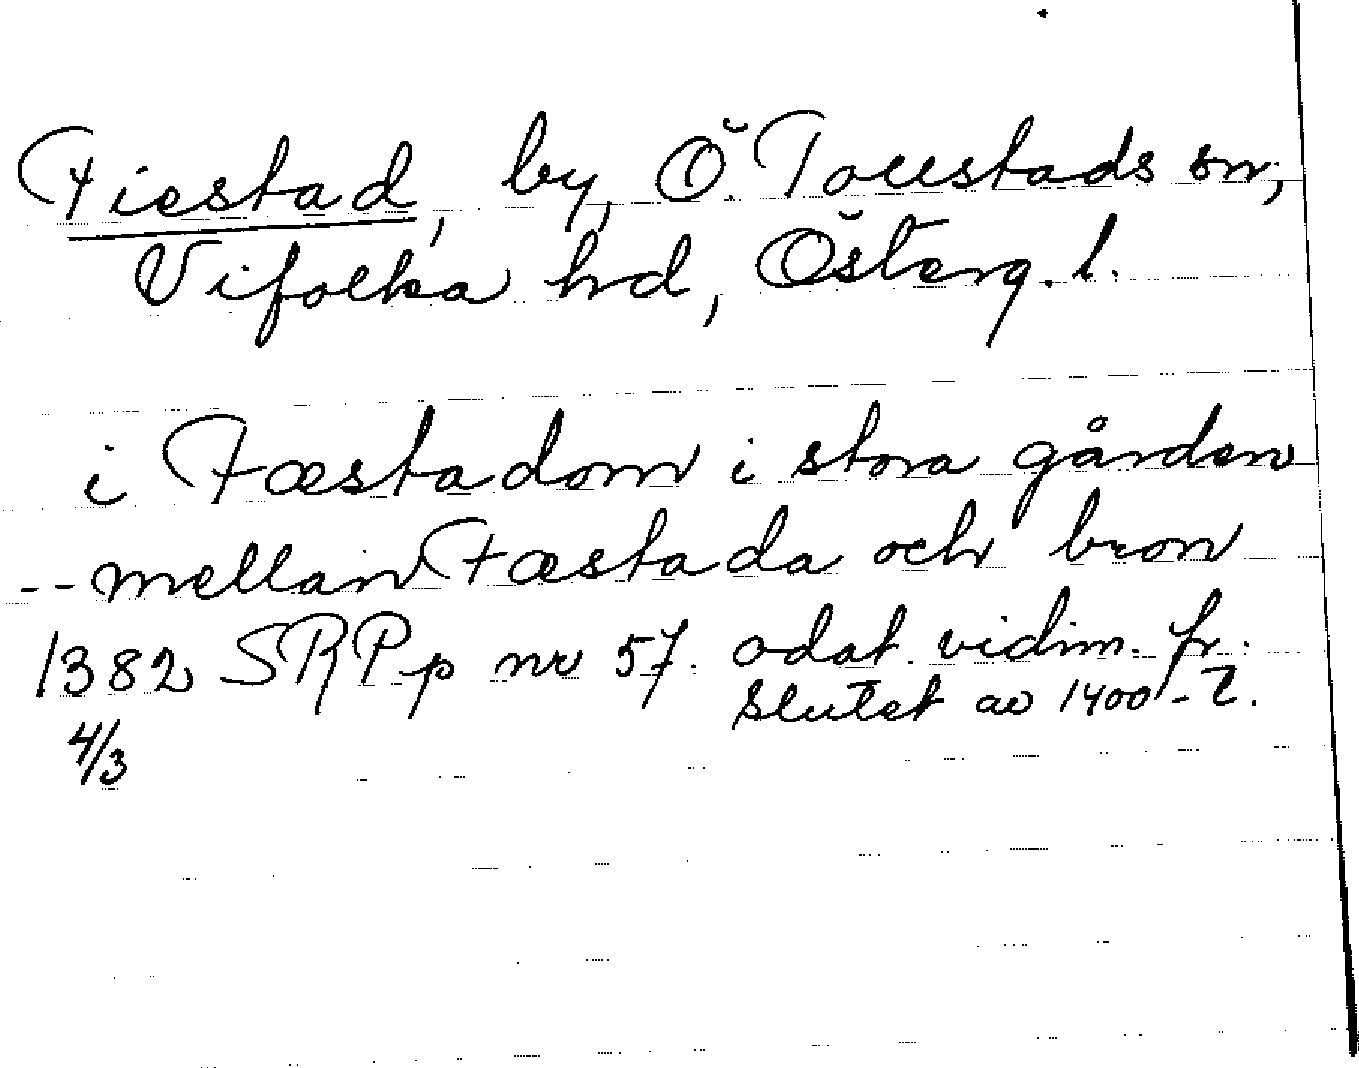 Fiestad, by, Ö. Tollstads sn,
Vifolka hd, Österg. l.
i Fæstadom i stora gården
-- mellan Fæstada och bron
1382 SRPp nr 57. odat. vidim. fr.
slutet av 1400-t.
4/3